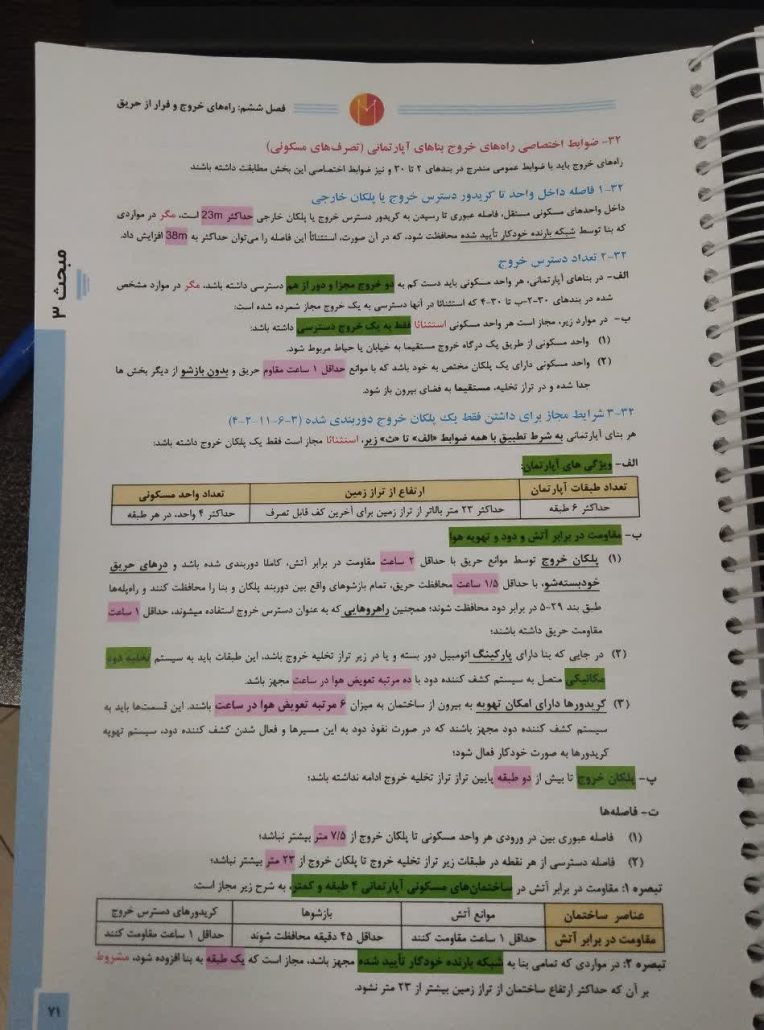 فصل ششم: راه‌های خروج و فرار از حریق
۳۲- ضوابط اختصاصی راه‌های خروج بناهای آپارتمانی (تصرف‌های مسکونی)
راه‌های خروج باید با ضوابط عمومی مندرج در بندهای ۲ تا ۳۰ و نیز ضوابط اختصاصی این بخش مطابقت داشته باشند
۳۲-۱ فاصله داخل واحد تا کریدور دسترس خروج یا پلکان خارجی
داخل واحدهای مسکونی مستقل، فاصله عبوری تا رسیدن به کریدور دسترس خروج یا پلکان خارجی حداکثر 23m است، مگر در مواردی
که بنا توسط شبکه بارنده خودکار تأیید شده محافظت شود، که در آن صورت، استثنائاً این فاصله را می‌توان حداکثر به 38m افزایش داد.
۳۲-۲ تعداد دسترس خروج
الف- در بناهای آپارتمانی، هر واحد مسکونی باید دست کم به دو خروج مجزا و دور از هم دسترسی داشته باشد، مگر در موارد مشخص
شده در بندهای ۳۰-۲-ب تا ۳۰-۴ که استثنائا در آنها دسترسی به یک خروج مجاز شمرده شده است:
ب- در موارد زیر، مجاز است هر واحد مسکونی استثنائا فقط به یک خروج دسترسی داشته باشد:
(۱) واحد مسکونی از طریق یک درگاه خروج مستقیما به خیابان یا حیاط مربوط شود.
(۲) واحد مسکونی دارای یک پلکان مختص به خود باشد که با موانع حداقل ۱ ساعت مقاوم حریق و بدون بازشو از دیگر بخش ها
جدا شده و در تراز تخلیه، مستقیما به فضای بیرون باز شود.
۳۲-۳ شرایط مجاز برای داشتن فقط یک پلکان خروج دوربندی شده (۳-۶-۱۱-۲-۴)
هر بنای آپارتمانی به شرط تطبیق با همه ضوابط «الف» تا «ث» زیر، استثنائا مجاز است فقط یک پلکان خروج داشته باشد:
الف- ویژگی های آپارتمان:
تعداد طبقات آپارتمان ارتفاع از تراز زمین تعداد واحد مسکونی
حداکثر ۶ طبقه حداکثر ۲۳ متر بالاتر از تراز زمین برای آخرین کف قابل تصرف حداکثر ۴ واحد، در هر طبقه
ب- مقاومت در برابر آتش و دود و تهویه هوا
(۱) پلکان خروج توسط موانع حریق با حداقل ۲ ساعت مقاومت در برابر آتش، کاملا دوربندی شده باشد و درهای حریق
خودبسته‌شو، با حداقل ۱/۵ ساعت محافظت حریق، تمام بازشوهای واقع بین دوربند پلکان و بنا را محافظت کنند و راه‌پله‌ها
طبق بند ۲۹-۵ در برابر دود محافظت شوند؛ همچنین راهروهایی که به عنوان دسترس خروج استفاده میشوند، حداقل ۱ ساعت
مقاومت حریق داشته باشند؛
(۲) در جایی که بنا دارای پارکینگ اتومبیل دور بسته و یا در زیر تراز تخلیه خروج باشد، این طبقات باید به سیستم تخلیه دود
مکانیکی متصل به سیستم کشف کننده دود با ده مرتبه تعویض هوا در ساعت مجهز باشد.
(۳) کریدورها دارای امکان تهویه به بیرون از ساختمان به میزان ۶ مرتبه تعویض هوا در ساعت باشند. این قسمت‌ها باید به
سیستم کشف کننده دود مجهز باشند که در صورت نفوذ دود به این مسیرها و فعال شدن کشف کننده دود، سیستم تهویه
کریدورها به صورت خودکار فعال شود؛
پ- پلکان خروج تا بیش از دو طبقه پایین تراز تراز تخلیه خروج ادامه نداشته باشد؛
ت- فاصله‌ها
(۱) فاصله عبوری بین در ورودی هر واحد مسکونی تا پلکان خروج از ۷/۵ متر بیشتر نباشد؛
(۲) فاصله دسترسی از هر نقطه در طبقات زیر تراز تخلیه خروج تا پلکان خروج از ۲۳ متر بیشتر نباشد؛
تبصره ۱: مقاومت در برابر آتش در ساختمان‌های مسکونی آپارتمانی ۴ طبقه و کمتر، به شرح زیر مجاز است:
عناصر ساختمان موانع آتش بازشوها کریدورهای دسترس خروج
مقاومت در برابر آتش حداقل ۱ ساعت مقاومت کنند حداقل ۴۵ دقیقه محافظت شوند حداقل ۱ ساعت مقاومت کنند
تبصره ۲: در مواردی که تمامی بنا به شبکه بارنده خودکار تأیید شده مجهز باشد، مجاز است که یک طبقه به بنا افزوده شود، مشروط
بر آن که حداکثر ارتفاع ساختمان از تراز زمین بیشتر از ۲۳ متر نشود.
مبحث ۳
۷۱